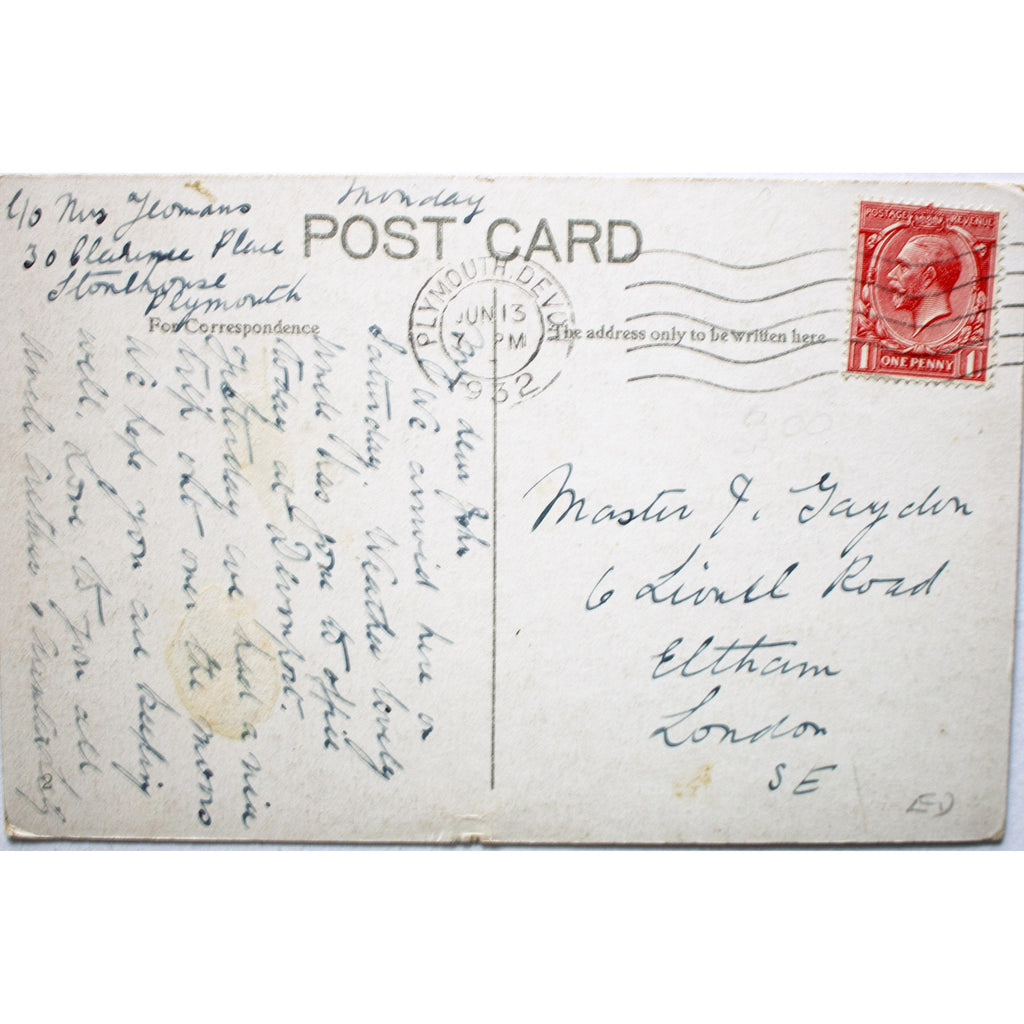 c/o Mrs Yeomans
30 Place
Stonehouse
Plymouth
Monday
POST CARD
PLYMOUTH. DEVON
JUN 13
7 PM
1932
POSTAGE REVENUE
1 ONE PENNY 1
For Correspondence
The address only to be written here
My dear John
We arrived here on
Saturday. Weather lovely
Uncle has gone to
today at Devonport.
Yesterday we had a nice
trip out over the moors
We hope you are keeping
well. Love to you all
Uncle Arthur &
Master J. Gaydon
6 Lionel Road
Eltham
London
SE
2